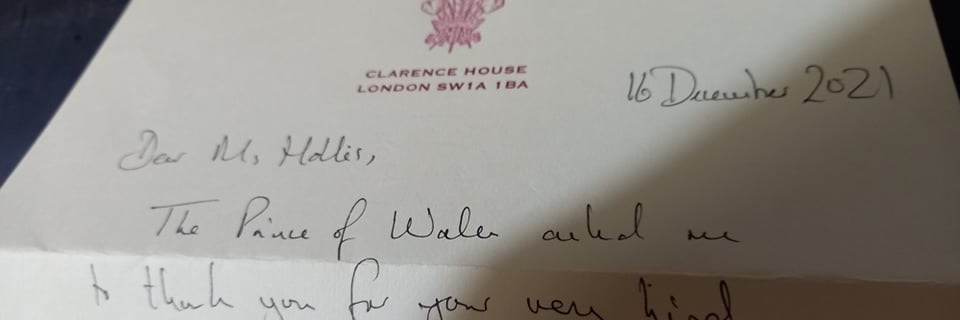 CLARENCE HOUSE
LONDON SW1A 1BA
16 December 2021
Dear Ms Hollis,
The Prince of Wales asked me
to thank you for your very kind